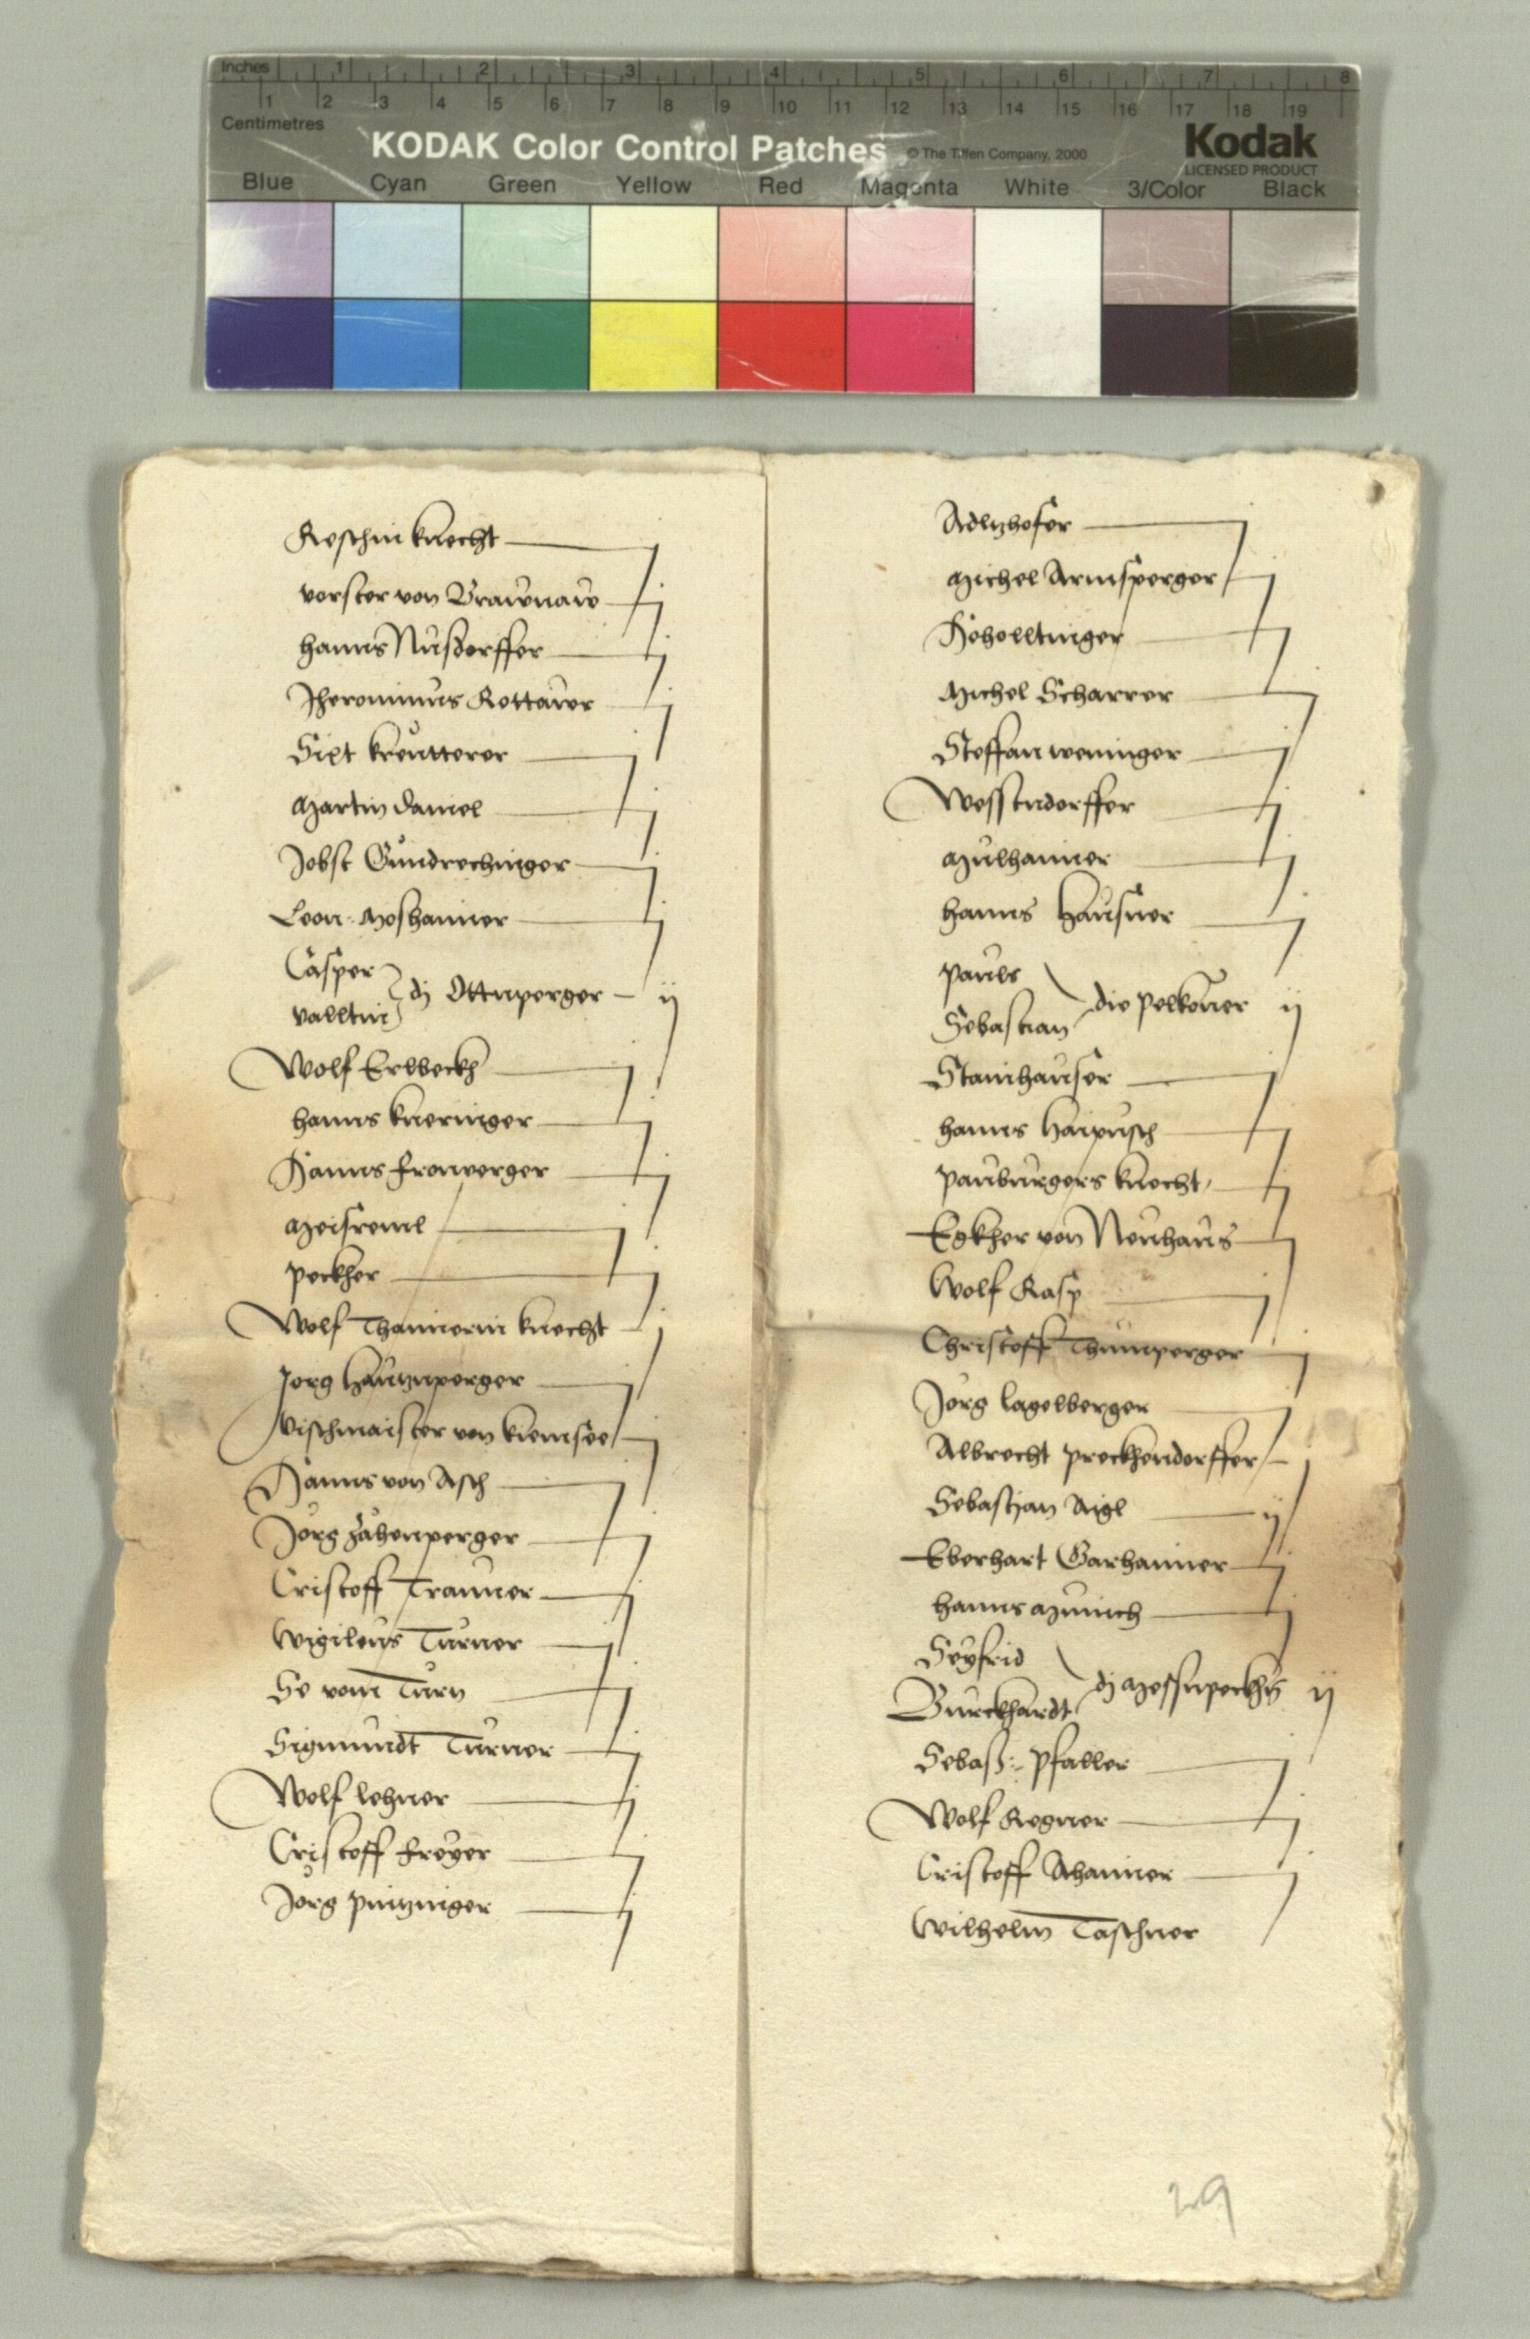 Inches 1 2 3 4 5 6 7 8
1 2 3 4 5 6 7 8 9 10 11 12 13 14 15 16 17 18 19
Centimetres
KODAK Color Control Patches © The Tiffen Company, 2000 Kodak
LICENSED PRODUCT
Blue Cyan Green Yellow Red Magenta White 3/Color Black
Roschin knecht j
vorster von Brawnaw j
hanns Nusdorffer j
Jheronimus Rottawer j
Sixt kreutterer j
Martin Daniel j
Jobst Gundrechinger j
Leon: Moshaimer j
Casper
valltin
dj Ottnperger ij
Wolf Erlbeckh j
hanns kneringer j
Hanns Fronperger j
j
peckher j
Wolf Thannerin knecht j
Jorg j
vischmaister von kiemsee j
Hanns von Asch j
Jorg j
Cristoff Trauner j
Wigileus Turner j
Se vom Turn j
Sigmundt Turner j
Wolf lehner j
Cristoff Freyer j
Jorg puitzniger j
Adltzhofer j
Michel Armsperger j
Hoholltinger j
Michel Scharrer j
Steffan weninger j
Wesstndorffer j
Mulhaimer j
hanns Hausner j
pauls
Sebastian
die pelkover ij
Stainhauser j
hanns j
knecht j
Egkher von Neuhaus j
Wolf Rasp j
Christoff Thumperger j
Jorg lagelberger j
Albrecht preckhendorffer j
Sebastian Aigl ij
Eberhart Garhamer j
hanns Munich j
Seyfrid
Burckhardt
dj Messnpeckhn ij
Sebast: pfaller j
Wolf Regner j
Cristoff Ahaimer j
Wilhelm Taschner
29